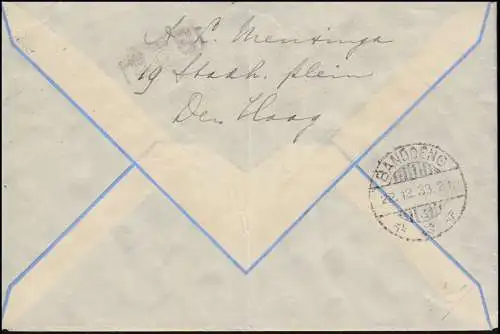 A. L. Mensinga
19 Stadh. plein
Den Haag
BANDOENG
22.12.33.